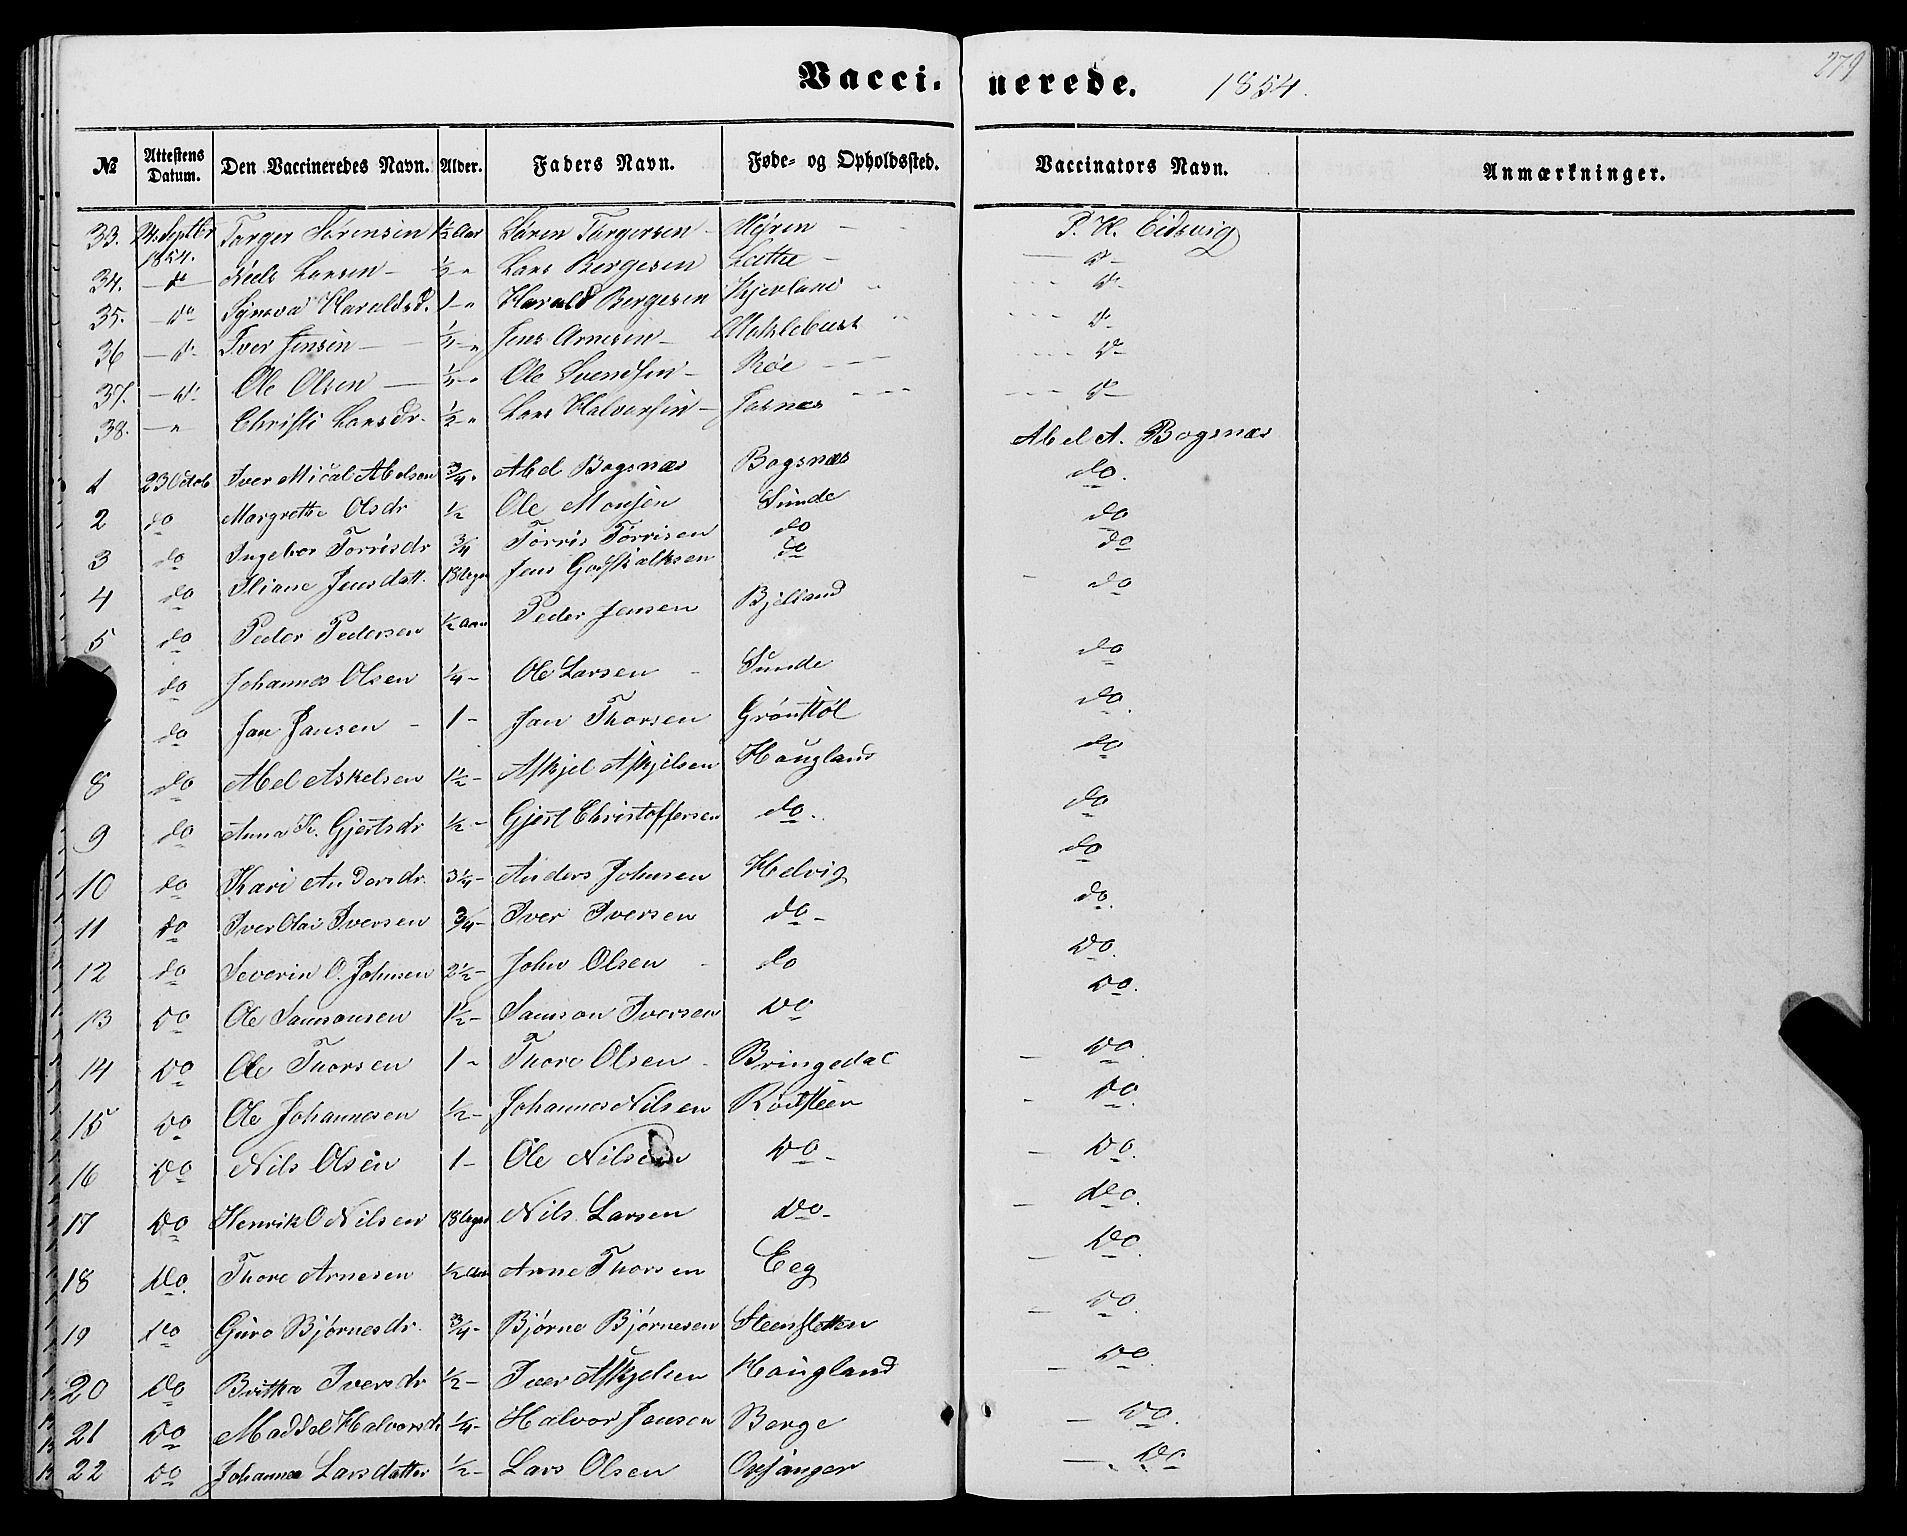 Vacci. nerede. 1854. 279
№ Attestens Datum. Den Vaccineredes Navn. Alder. Faders Navn. Føde- og Opholdssted. Vaccinators Navn. Anmærkninger.
33. 24 Septbr 1854. Torger Sörensen 1½ Aar Sören Torgersen Mýren P. H. Eidsvig
34. do Niels Larsen ½ " Lars Bergesen do
35. do Synava Haraldsd. 1 " Harald Bergesen Kjevland do
36 do Iver Jensen ½ " Jens Arnesen Moklebust do
37. do Ole Olsen ½ " Ole Svendsen Röe do
38. " Christi Larsdr. ½ " Lars Halvorsen do
1 23 Octob Iver Mical Abelsen ¾ " Abel Bogsnæs Bogsnæs Abel A. Bogsnæs
2 do Margrethe Olsdr ½ Ole Monsen Sunde do.
3 do Ingebor Torrisdr ¾ Törris Törrisen do do
4 do Iliane Jensdatt. 13 Uger Jens Godskalksen do do
5 do Peder Pedersen ½ Aar Peder Jensen Bjelland do
do Johannes Olsen ¼ - Ole Larsen Sunde do
do Jan Jansen 1 - Jan Thorsen Grönstöl do.
8 do Abel Askelsen 1½ - Askjel Askjelsen Hougland do
9 do Anna K. Gjertsdr ½ - Gjert Christoffersen do. do
10 do Kari Andersdr. 3¼ - Anders Johnsen Helvig do
11 do Iver Olai Iversen ¾ - Iver Iversen do - do.
12 do Severin O. Johnsen 2½ - John Olsen do do.
13 do Ole Samsonsen 1½ - Samson Iversen do do.
14 do Ole Thorsen 1 - Thore Olsen Bringedal do.
15 do Ole Johannesen ½ - Johannes Nilsen Rödsteen do.
16 do Nils Olsen 1 - Ole Nilsen do - do.
17 do Henrik O Nilsen 13 Uger Nils Larsen do - do.
18 do. Thore Arnesen ½ Aar Arne Thorsen Eeg do.
19 do Guro Björnesdr. ¾ - Björne Björnesen Steensletten do.
20 do Britha Iversdr ½ - Iver Askjelsen Hougland do.
21 do Maddel Halvorsdr ¼ - Halvor Jansen Berge do.
22 do Johanna Larsdatter ½ - Lars Olsen do